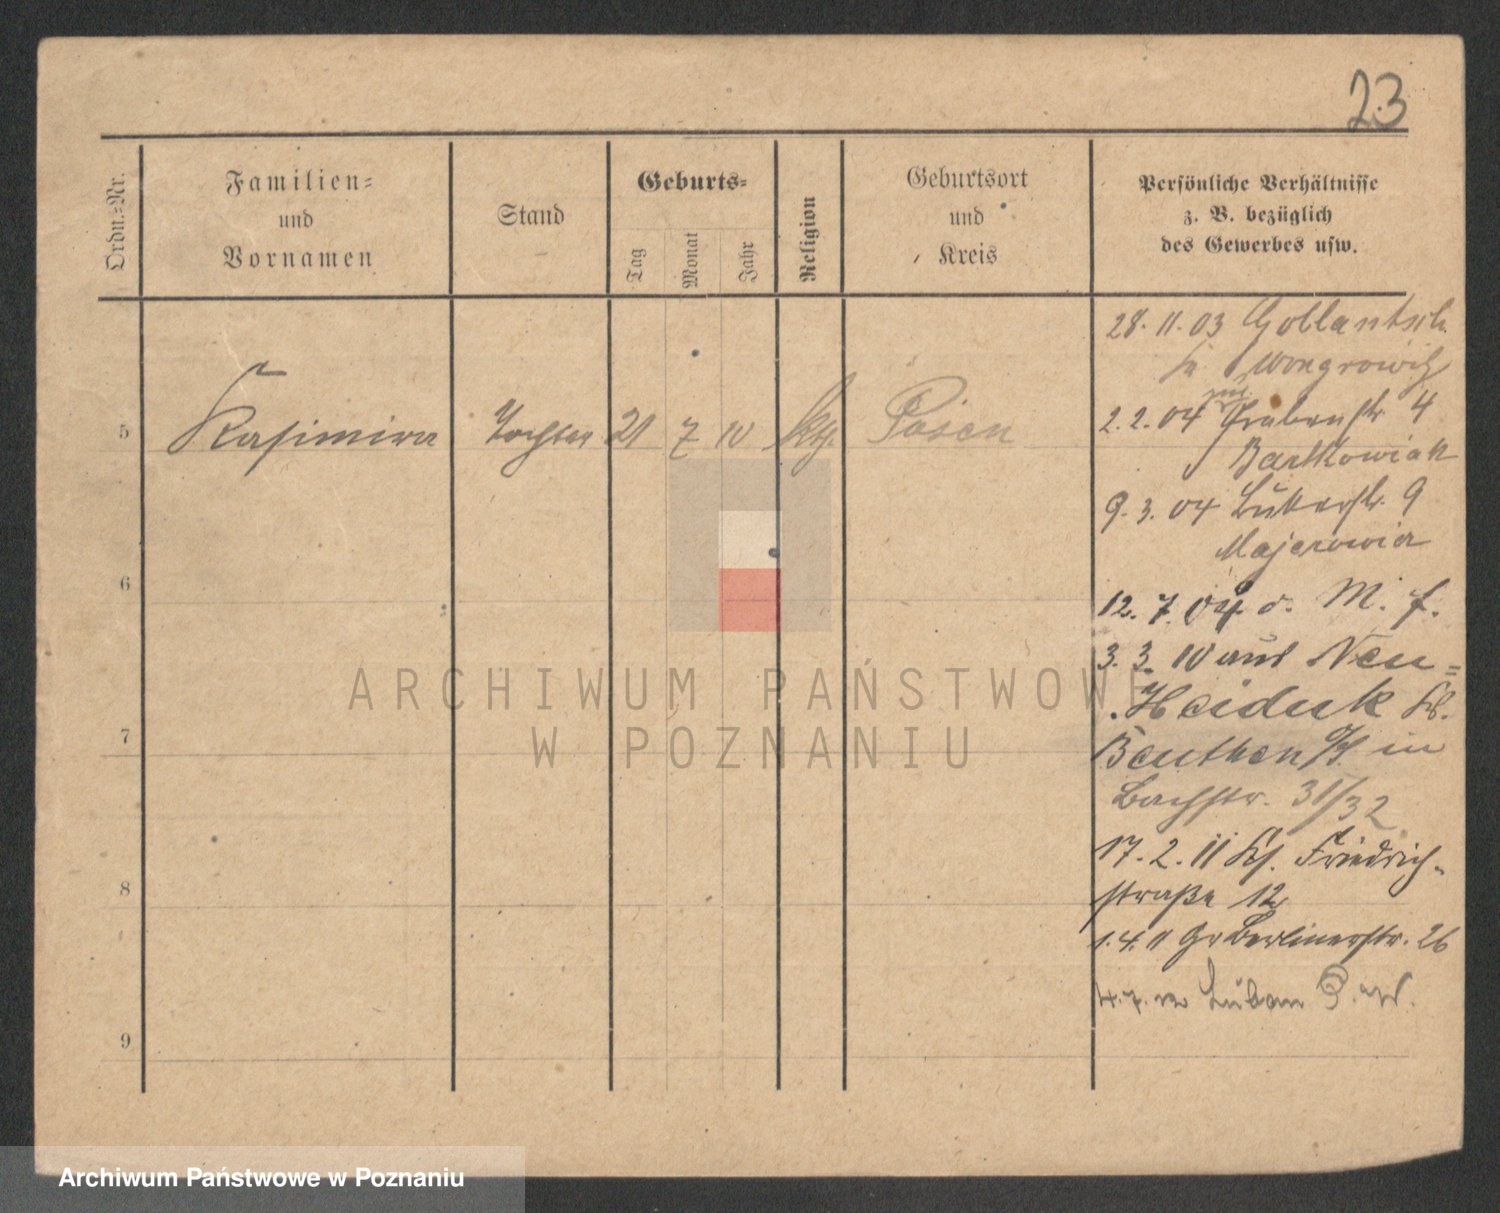 23
Ordn.=Nr.
Familien=
und
Vornamen
Stand
Geburts=
Tag
Monat
Jahr
Religion
Geburtsort
und
Kreis
Persönliche Verhältnisse
z. B. bezüglich
des Gewerbes usw.
28. 11. 03 Gollantsch
Wongrowitz
5 Kasimira Tochter 21 7 10 kth. Posen
2. 2. 04 Grabenstr 4
Bartkowiak
9. 3. 04 9
Majerowicz
12. 7. 04. o. M. f.
3. 3. 10 aus Neu=
Heiduk Kr.
Beuthen O/S. in
Bachstr. 31/32
17. 2. 11 Kf. Friedrich-
straße 12
1. 4. 11 Gr Berlinerstr. 26
4. 7. Luban P. W.
6
7
8
9
ARCHIWUM PAŃSTWOWE
W POZNANIU
Archiwum Państwowe w Poznaniu